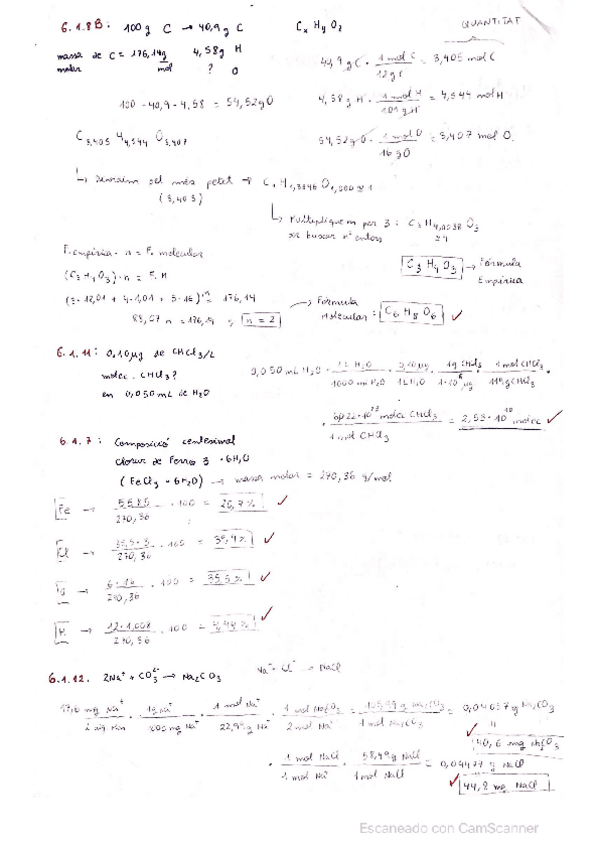 QUANTITAT
6.1.8B: 100g C → 40,9g C CxHyOz
massa molar de C = 176,14g/mol 4,58g H
? O
40,9g C · 1 mol C / 12g C = 3,405 mol C
100 - 40,9 - 4,58 = 54,52g O
4,58 g H · 1 mol H / 1,01 g H = 4,544 mol H
C3,405 H4,544 O3,407
54,52g O · 1 mol O / 16 g O = 3,407 mol O.
↳ més petit → C1 H1,3346 O1,000
(3,405)
↳ Multipliquem per 3: C3 H4,0038 O3
per buscar nº enters
C3 H4 O3 → Fórmula Empírica
F. empírica · n = F. molecular
(C3 H4 O3) · n = F. M
(3 · 12,01 + 4 · 1,01 + 3 · 16) · n = 176,14
88,07 n = 176,14 n = 2
→ Fórmula Molecular: C6 H8 O6 ✓
6.1.11: 0,10 μg de CHCl3/L
molec. CHCl3?
en 0,050 mL de H2O
0,050 mL H2O · 1L H2O / 1000 mL H2O · 0,10 μg / 1L H2O · 1g CHCl3 / 1·10^6 μg · 1 mol CHCl3 / 119g CHCl3 ·
· 6,022·10^23 molec CHCl3 / 1 mol CHCl3 = 2,53·10^10 molec ✓
6.1.7: Composició centesimal
Clorur de Ferro 3 · 6H2O
(FeCl3 · 6H2O) → massa molar = 270,36 g/mol.
Fe → 55,85 / 270,36 · 100 = 20,7% ✓
Cl → 35,5·3 / 270,36 · 100 = 39,4% ✓
O → 6·16 / 270,36 · 100 = 35,5% ✓
H → 12·1,008 / 270,36 · 100 = 4,47% ✓
6.1.12. 2Na+ + CO3 2- → Na2CO3 Na+ Cl- → NaCl
17,6 mg Na+ · 1g Na+ / 1000 mg Na+ · 1 mol Na+ / 22,99g Na+ · 1 mol Na2CO3 / 2 mol Na+ · 105,99 g Na2CO3 / 1 mol Na2CO3 = 0,04057 g Na2CO3
✓ 40,6 mg Na2CO3
· 1 mol NaCl / 1 mol Na+ · 58,49g NaCl / 1 mol NaCl = 0,04477 g NaCl
✓ 44,8 mg NaCl
Escaneado con CamScanner